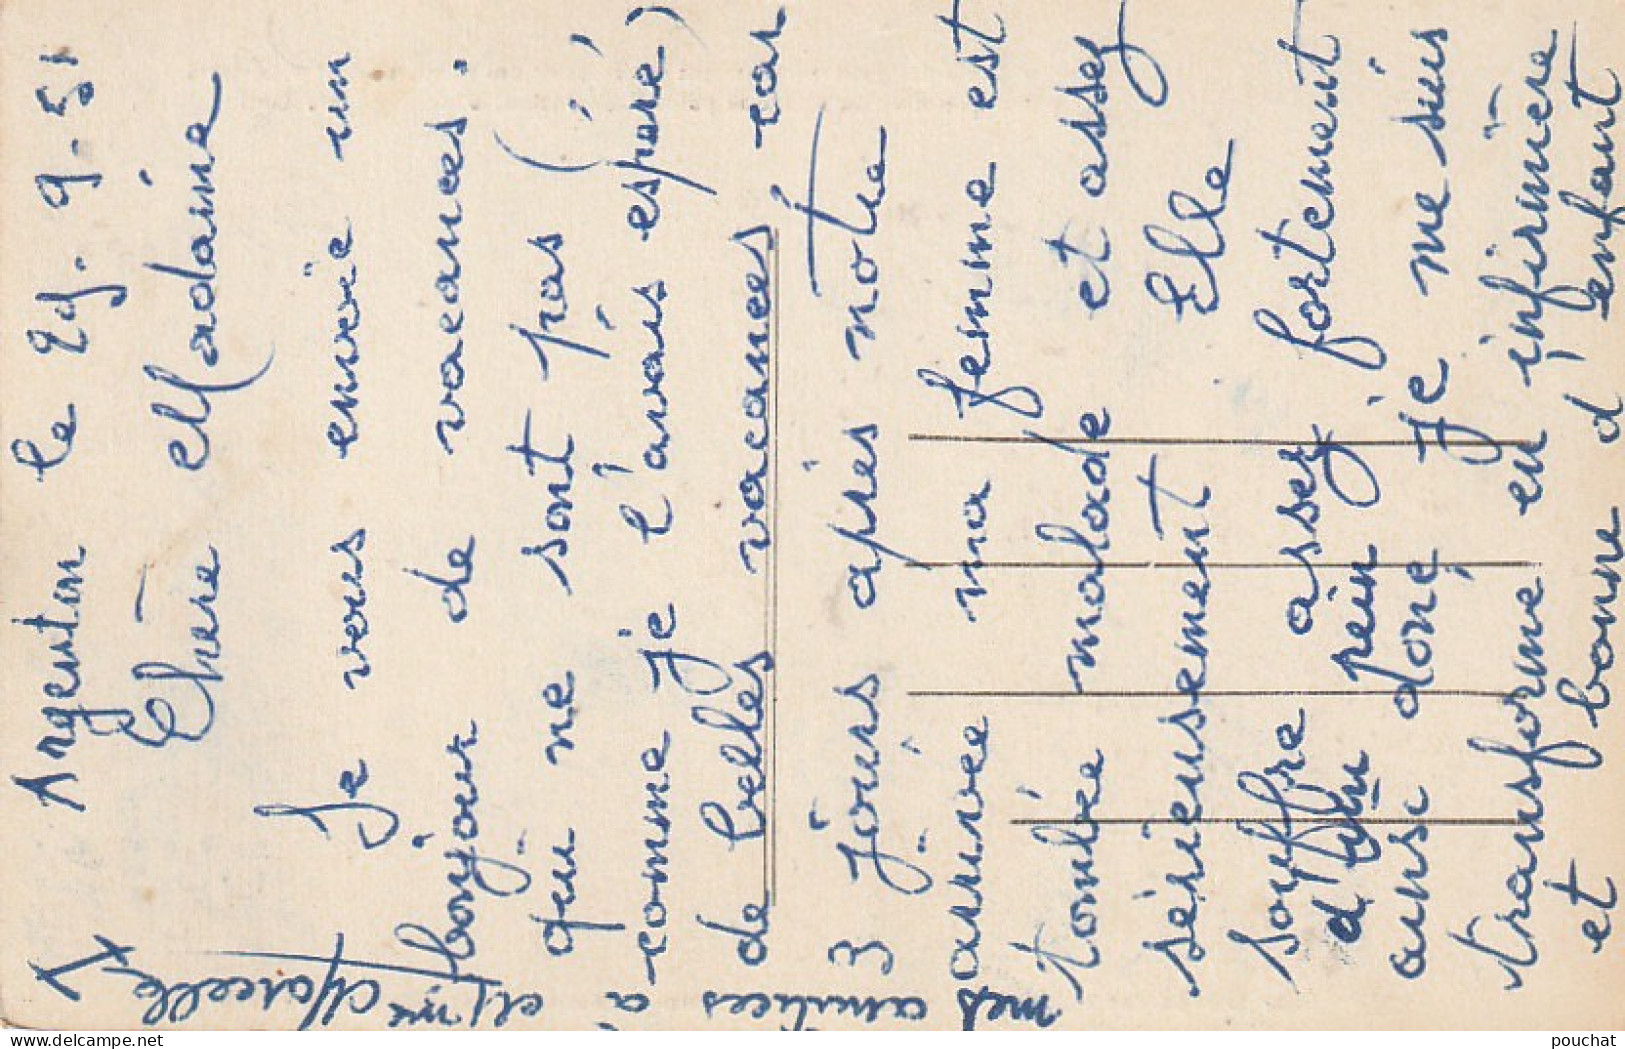 Argenton le 25-9-51
Chère Madame
Je vous envoie un
bonjour de vacances.
qui ne sont pas (
comme je l'avais espéré)
de belles vacances, car
3 jours après notre
arrivée ma femme est
tombée malade et assez
sérieusement Elle
souffre assez fortement
d'un rein,
ausi donc, je me suis
transformé en infirmière
et bonne d'enfant
mes amitiées à Mme Marcelle
pouchat